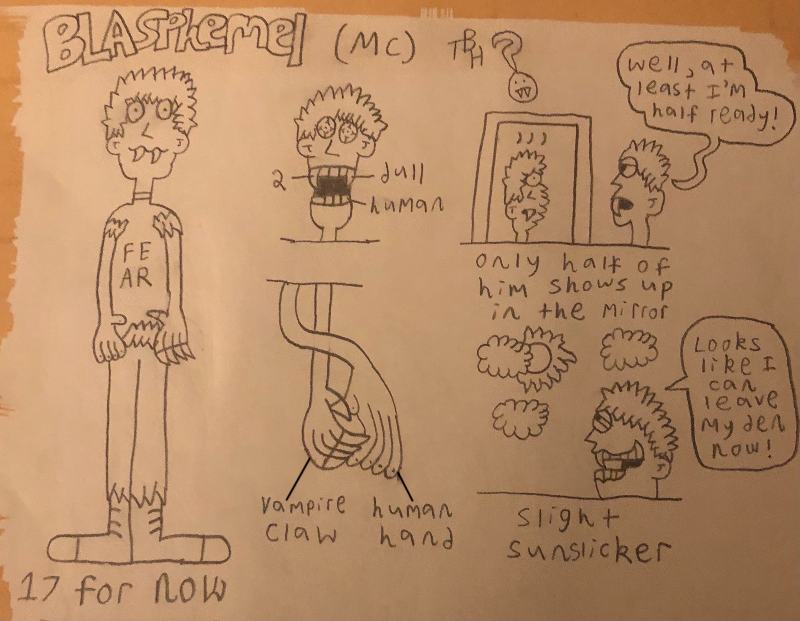 BLASPHEMEL (MC) TBH?
Well, at
least I'm
half ready!
FE
AR
2
dull
human
only half of
him shows up
in the mirror
Looks
like I
can
leave
My den
now!
Vampire
claw
human
hand
slight
sunslicker
17 for now